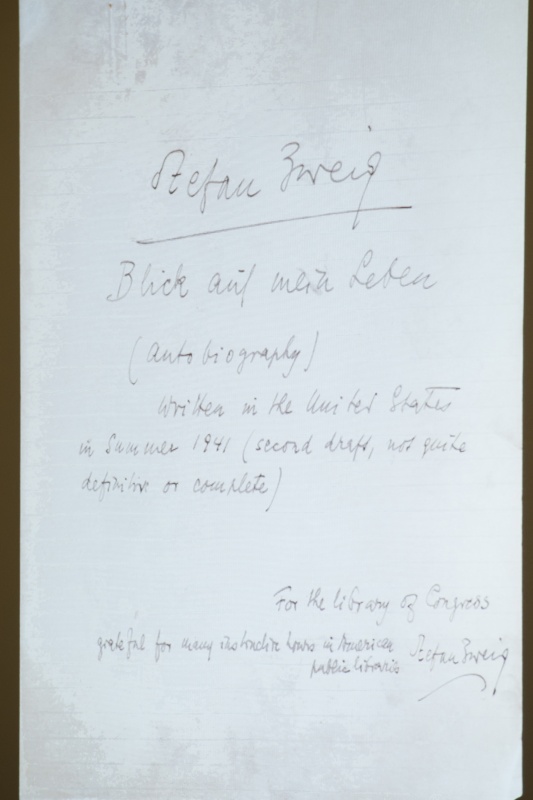 Stefan Zweig
Blick auf mein Leben
(Autobiography)
Written in the United States
in Summer 1941 (second draft, not quite
definitive or complete)
For the library of Congress
grateful for many instructive hours in American
public libraries
Stefan Zweig